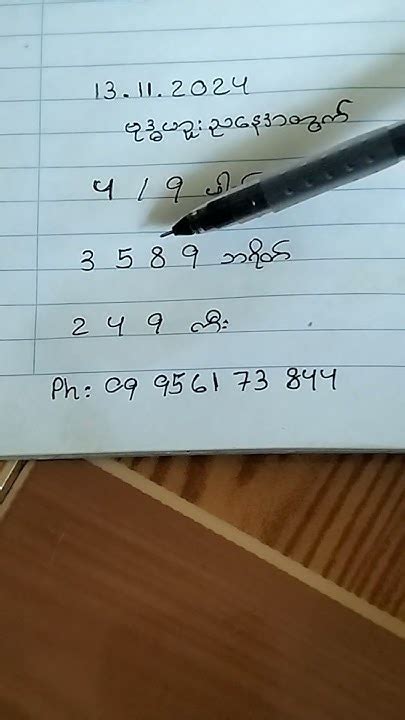 13.11.2024
ဗုဒ္ဓဟူးညနေအတွက်
4 / 9
3 5 8 9 ဘရိတ်
2 4 9 ထီး
Ph: 09 9561 73 844